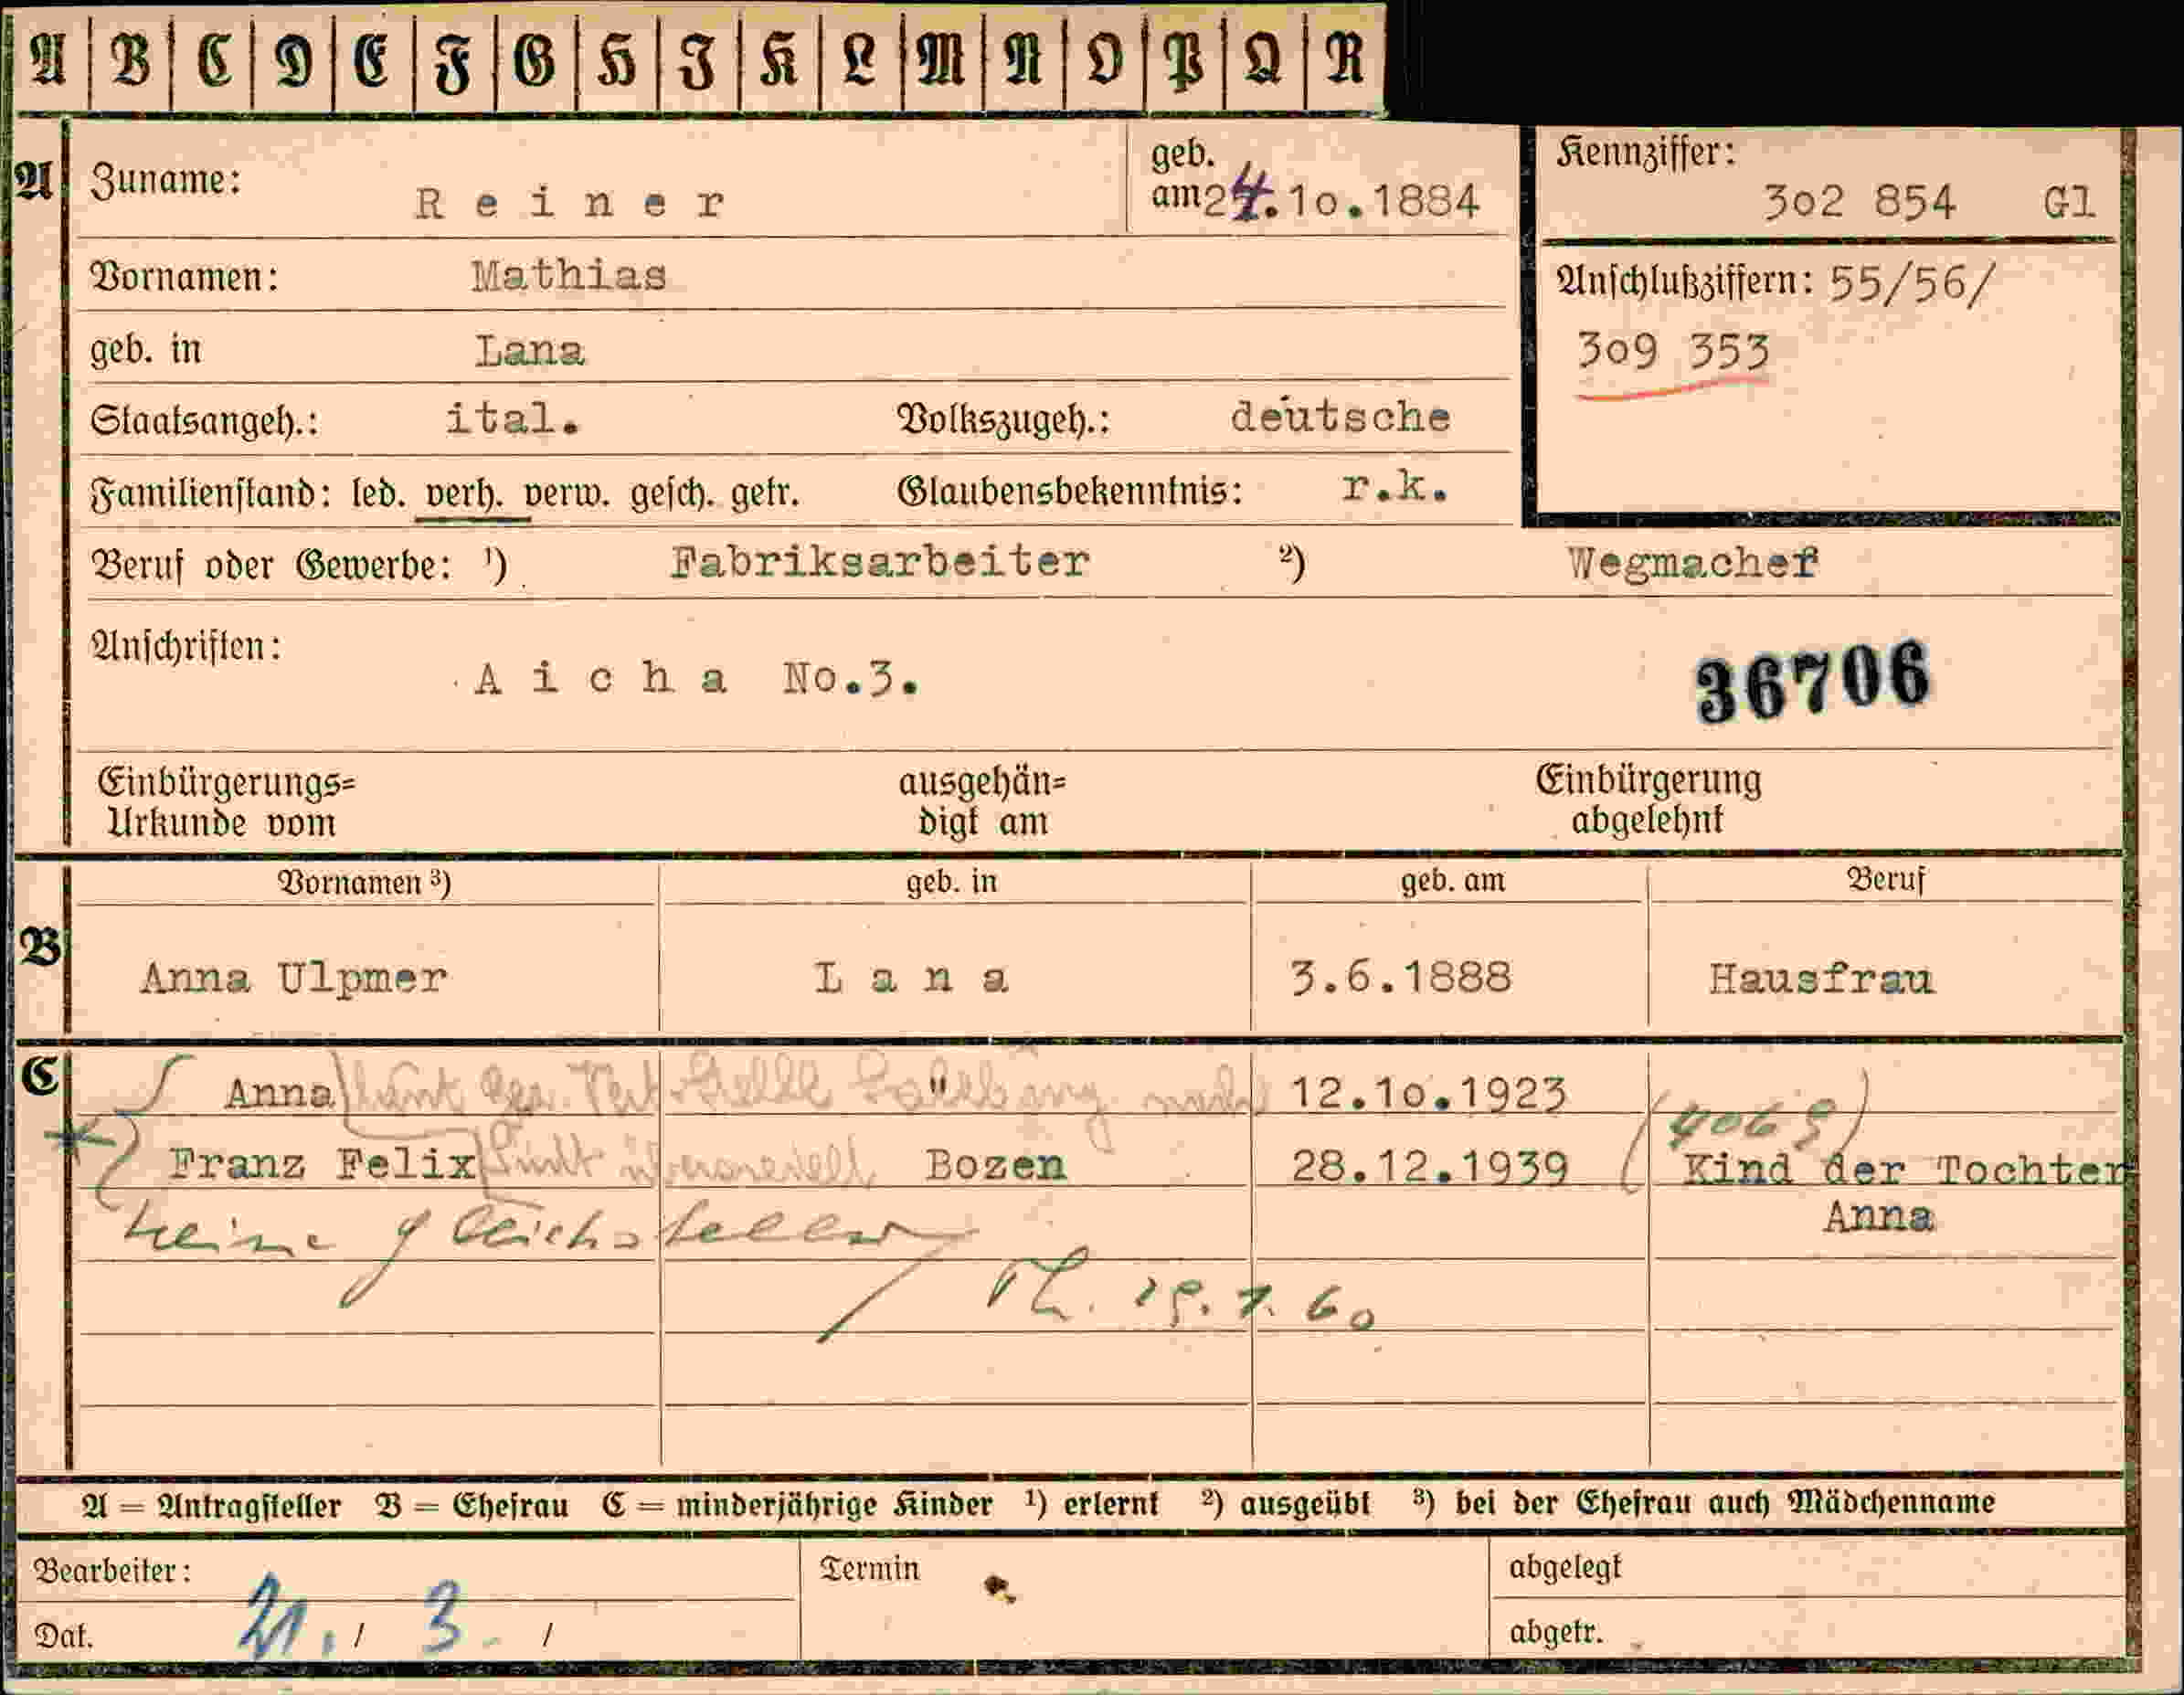 A B C D E F G H J K L M N O P Q R
A Zuname: Reiner geb. am 24.10.1884
Kennziffer: 302 854 Gl
Vornamen: Mathias
Anschlußziffern: 55/56/
309 353
geb. in Lana
Staatsangeh.: ital. Volkszugeh.: deutsche
Familienstand: led. verh. verw. gesch. getr. Glaubensbekenntnis: r.k.
Beruf oder Gewerbe: ¹) Fabriksarbeiter ²) Wegmacher
Anschriften: Aicha No.3.
36706
Einbürgerungs=
Urkunde vom
ausgehän=
digt am
Einbürgerung
abgelehnt
Vornamen ³) geb. in geb. am Beruf
B Anna Ulpmer Lana 3.6.1888 Hausfrau
C Anna " 12.10.1923
Franz Felix Bozen 28.12.1939 Kind der Tochter
Anna
keine
60
A = Antragsteller B = Ehefrau C = minderjährige Kinder ¹) erlernt ²) ausgeübt ³) bei der Ehefrau auch Mädchenname
Bearbeiter: Termin abgelegt
Dat. 21. / 3. / abgetr.